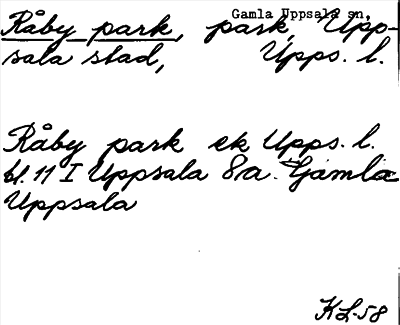 Gamla Uppsala sn.
Råby park, park, Upp-
sala stad, Upps. l.
Råby park ek Upps. l.
bl. 11 I Uppsala 8a. Gamla
Uppsala
KL-58